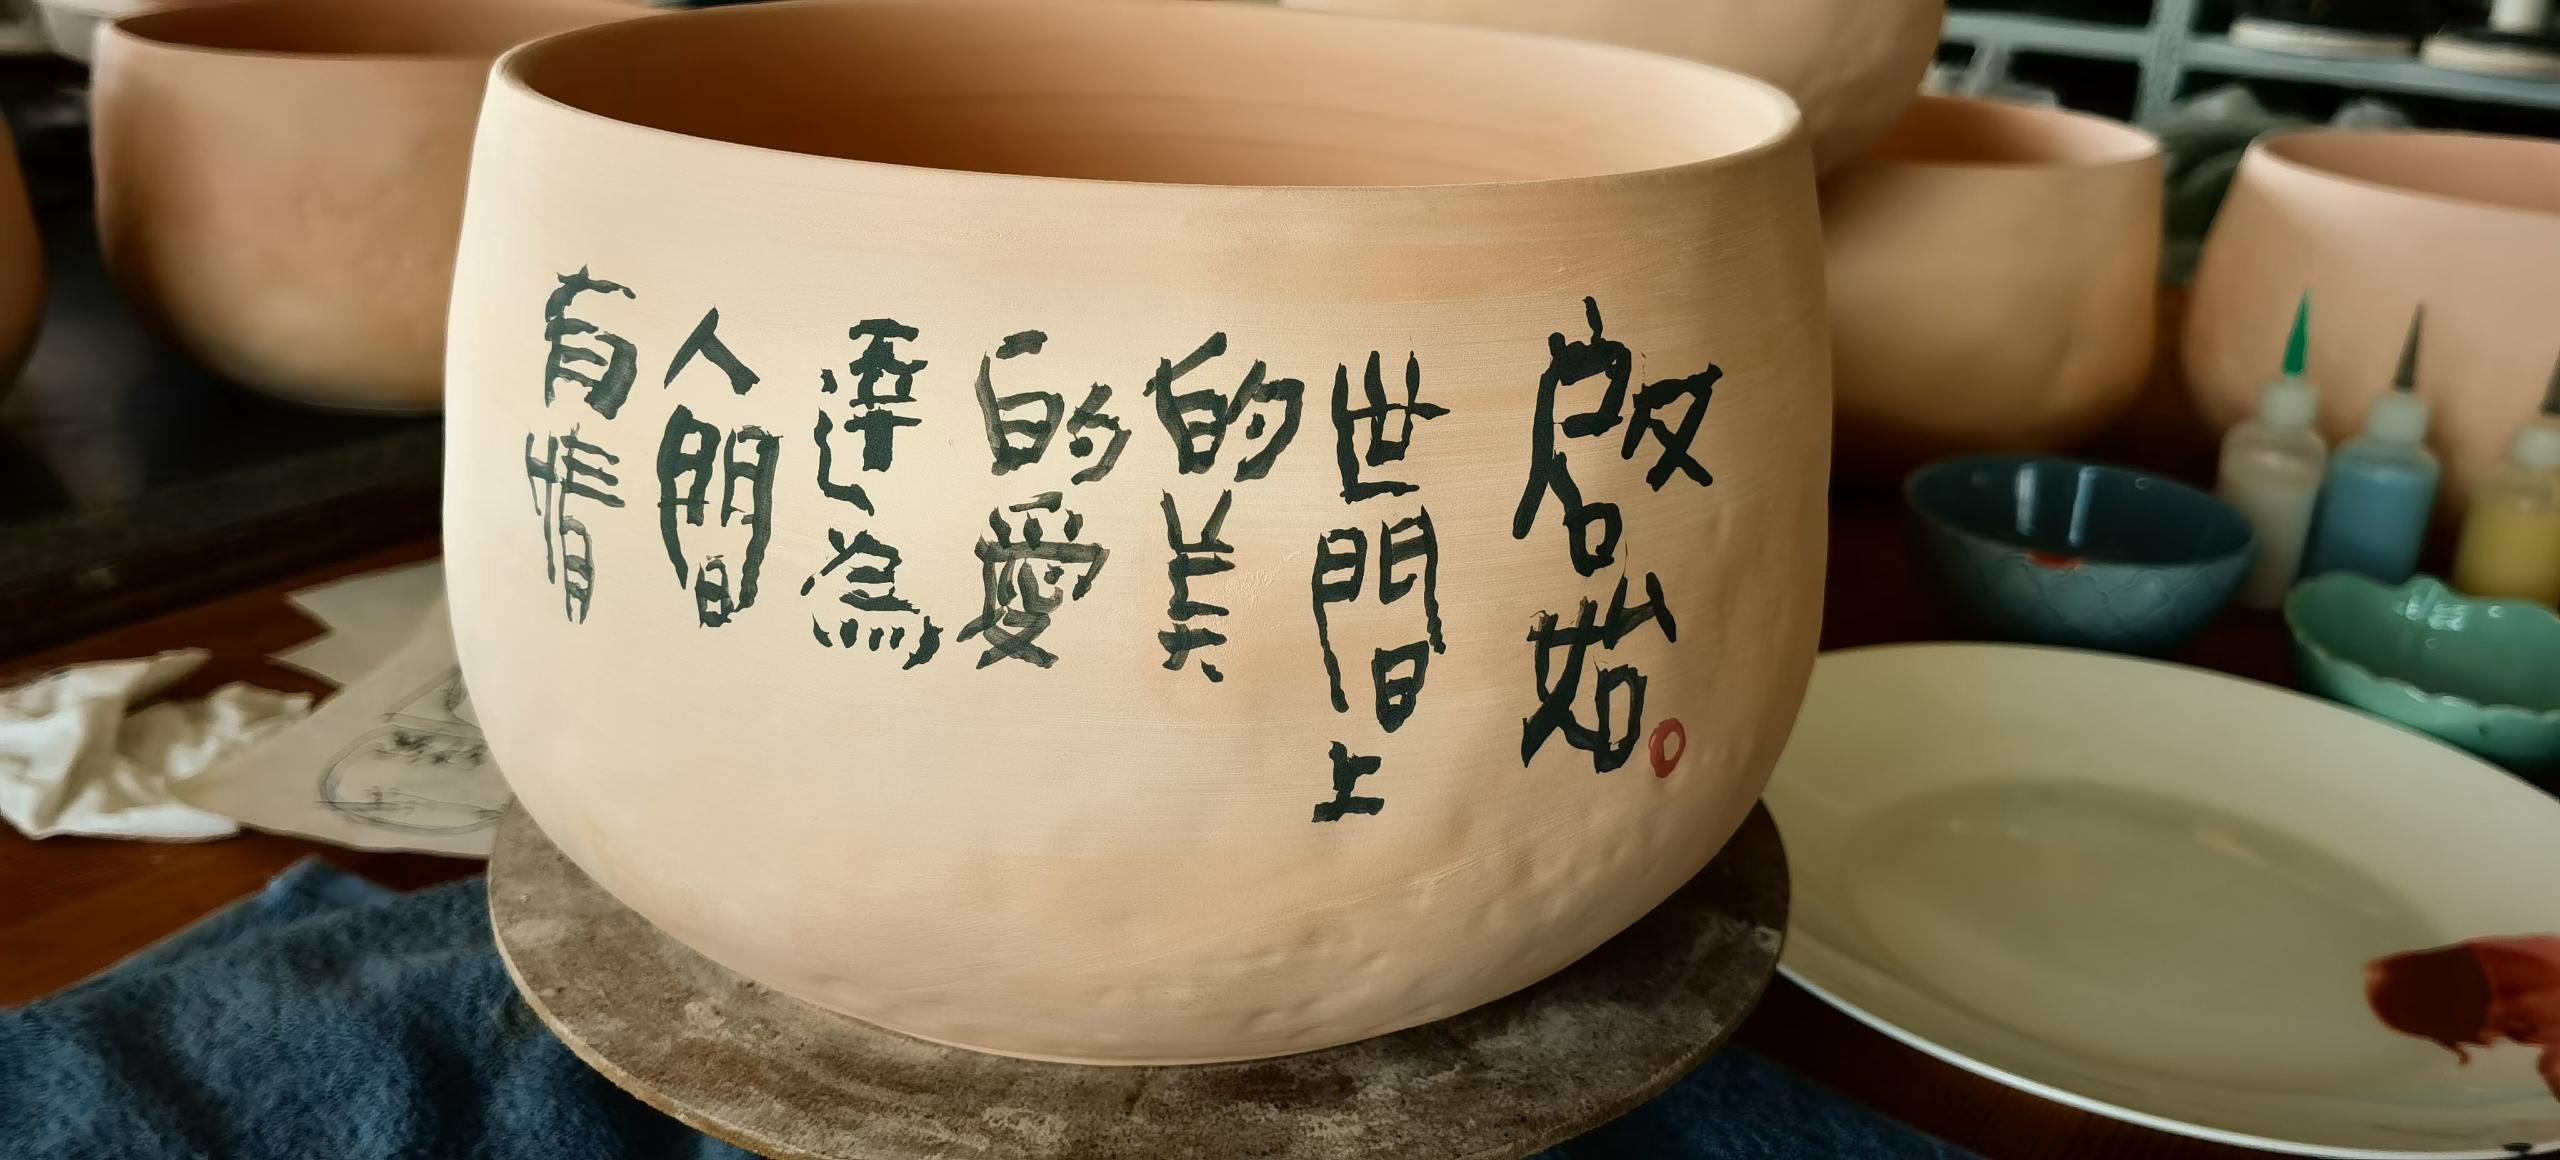 啟始
世間上
的美
的愛
達為
人間
有情